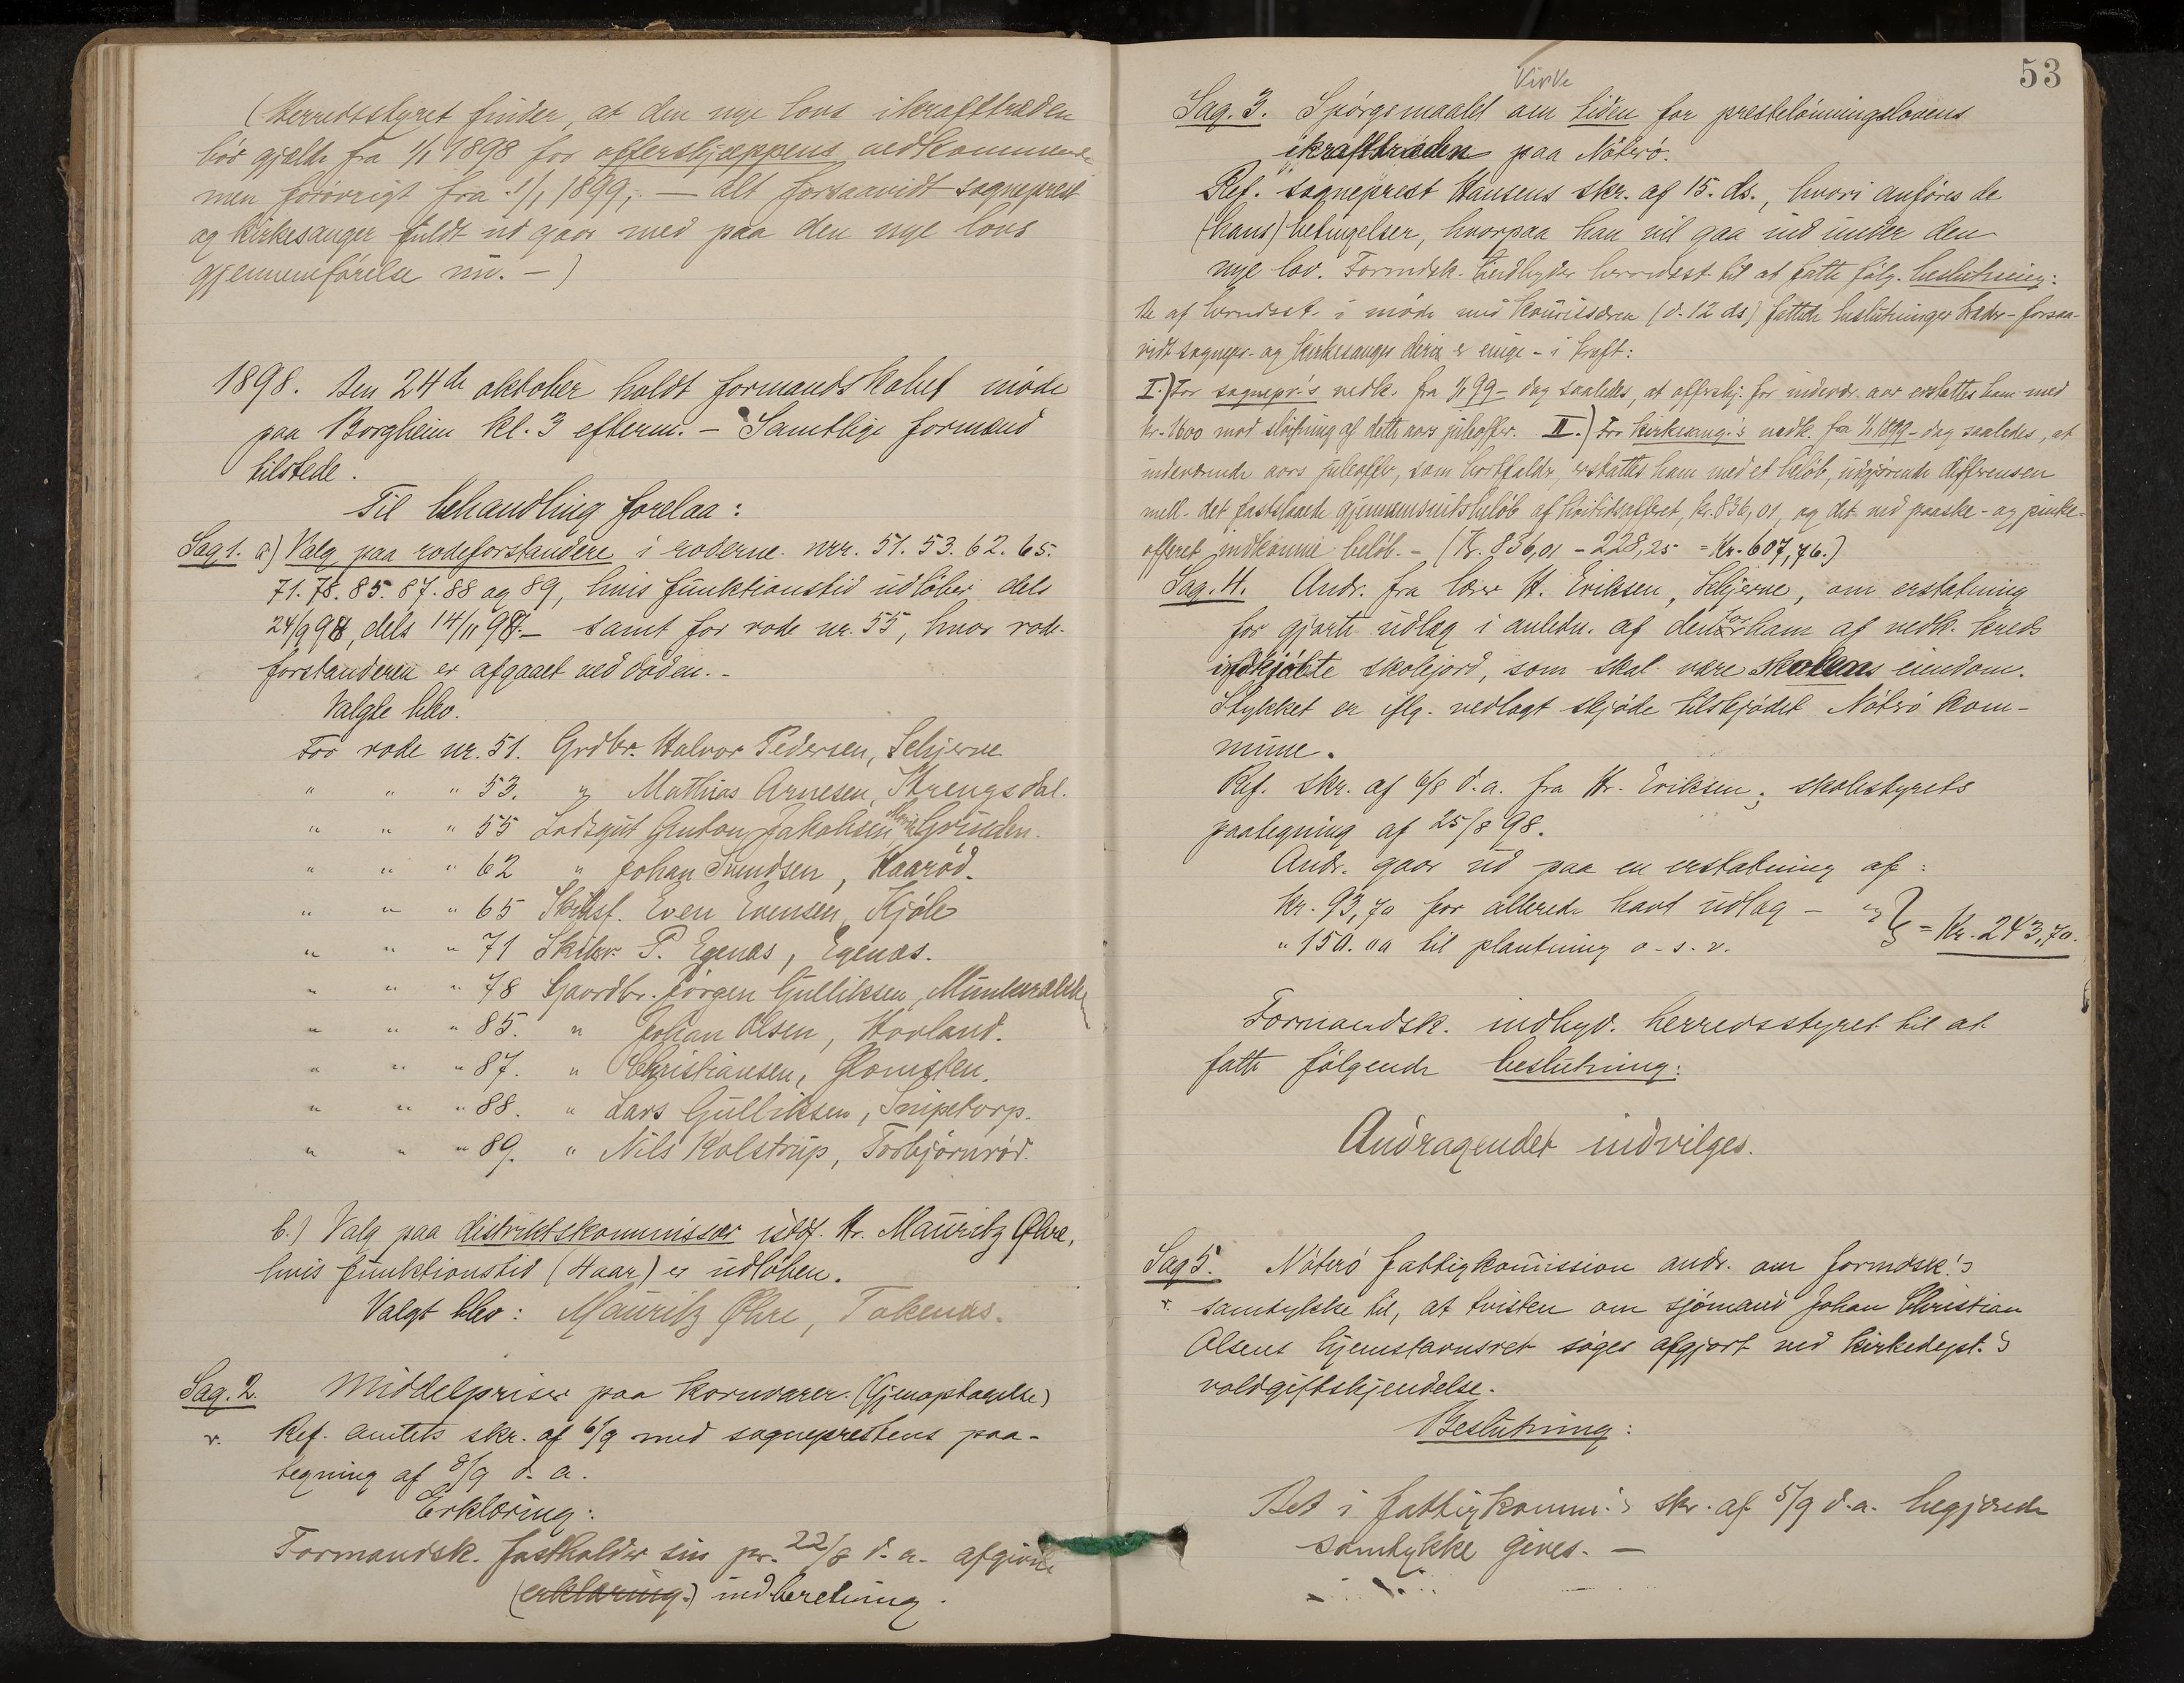 (Herredsstyret finder, at den nye lovs ikrafttræden
bör gjælde fra 1/1 1898 for offerskjæppens vedkommende
men forövrigt fra 1/1 1899, — alt forsaavidt sogneprest
og kirkesanger fuldt ud gaar med paa den nye lovs
gjennemförelse nu. -)
1898. Den 24de oktober holdt formandskabet möde
paa Borgheim kl. 3 efterm. - Samtlige formænd
tilstede.
Til behandling forelaa:
Sag 1. a) Valg paa rodeforstandere i roderne nrr. 51. 53. 62. 65.
71. 78. 85. 87. 88 og 89, hvis funktionstid udlöber dels
24/9 98, dels 14/11 98 - samt for rode nr. 55, hvor rode-
forstanderen er afgaaet ved döden. -
Valgte blev.
For rode nr. 51. Grdbr. Halvor Pedersen, Skjerve
" " " 53. " Mathias Arnesen, Strengsdal.
" " " 55 Lodsgut Anton Jakobsen, Grunden.
" " " 62 " Johan Svendsen, Kaaröd.
" " " 65 Skibsf. Even Evensen, Kjöle
" " " 71 Skibsr. P. Egenæs, Egenæs.
" " " 78 Gaardbr. Jörgen Gulliksen, Munkerekken
" " " 85. " Johan Olsen, Hovland.
" " " 87. " Christiansen, Glomsten.
" " " 88. " Lars Gulliksen, Snipetorp.
" " " 89. " Nils Kolstrup, Torbjörnröd.
b.) Valg paa distriktskommissær istdf. Hr. Mauritz Øhre,
hvis funktionstid (4 aar) er udlöben.
Valgt blev: Mauritz Øhre, Tokenæs.
Sag. 2. Middelpriser paa kornvarer. (Gjenoptagelse)
v. Ref. amtets skr. af 6/9 med sogneprestens paa-
tegning af 8/9 d. a.
Erklæring:
Formandsk. fastholder sin pr. 22/8 d. a. afgivne
(erklæring.) indberetning.
53
Virke
Sag. 3. Spörgsmaalet om tiden for prestelönningslovens
ikrafttræden paa Nöterö.
Ref. sogneprest Hansens skr. af 15. ds., hvori anföres de
(hans) betingelser, hvorpaa han vil gaa ind under den
nye lov. Formdsk. indbyder herredsst til at fatte fölg. beslutning:
De af herredsst. i möde med kourilsdren (d. 12 ds) fattede beslutninger træder - forsaa-
vidt sognepr. og kirkesanger deri er enige - i kraft:
I.) For sognepr's vedk. fra 1/1 99 - dog saaledes, at offerskj. for indevær. aar erstattes ham med
kr. 1600 mod slöifning af dette aars juleoffer. II.) For kirkesang.'s vedk. fra 1/1 1899 - dog saaledes, at
indeværende aars juleoffer, som bortfalder, erstattes ham med et belöb, udgjörende differensen
mell. det fastslaaede gjennemsnitsbelöb af höitidsofferet, kr. 836,01, og det ved paaske- og pinke-
offeret indkomne belöb. - (Kr. 836,01 - 228,25 = Kr. 607,76.)
Sag. 4. Andr. fra lærer H. Eriksen, Skjerve, om erstatning
for gjorte udlæg i anledn. af den for ham af vedk. kreds
indkjöbte skolejord, som skal være skolens eiendom.
Stykket er iflg. vedlagt skjöde tilskjödet Nöterö kom-
mune.
Ref. skr. af 6/8 d. a. fra Hr. Eriksen; skolestyrets
paategning af 25/8 98.
Andr. gaar ud paa en erstatning af:
kr. 93,70 for allerede havt udlæg -
" 150.00 til plantning o. s. v. = Kr. 243,70.
Formandsk. indbyd. herredsstyret til at
fatte fölgende beslutning:
Andragendet indvilges.
Sag 5. Nöterö fattigkommission andr. om formdsk.'s
v. samtykke til, at tvisten om sjömand Johan Christian
Olsens hjemstavnsret söges afgjort ved kirkedept.'s
voldgiftskjendelse.
Beslutning:
Det i fattigkomm.'s skr. af 5/9 d. a. begjærede
samtykke gives. -